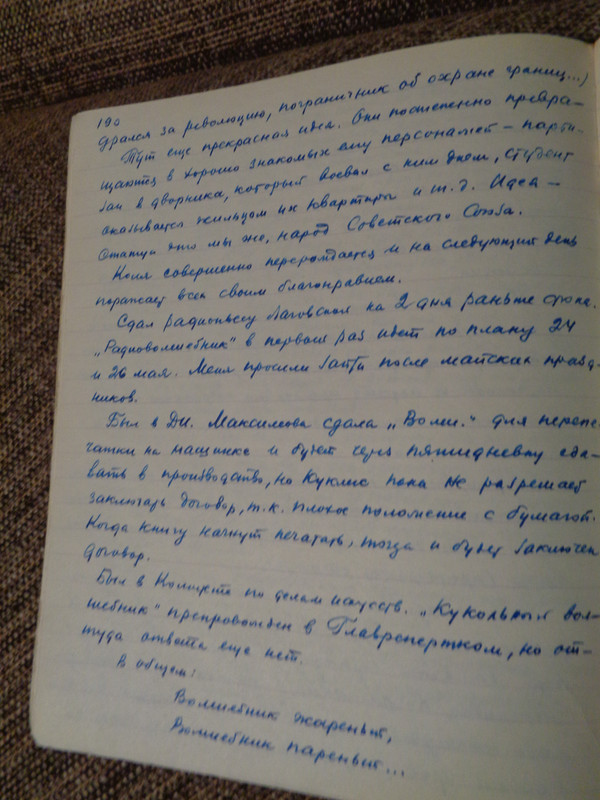 190
дрался за революцию, пограничник об охране границ...)
Тут еще прекрасная идея. Они постепенно превра-
щаются в хорошо знакомых ему персонажей – парти-
зан в дворника, который воевал с ним днем, студент
оказывается жильцом их квартиры и т. д. Идея –
Отатуи это мы же, народ Советского Союза.
Коля совершенно перерождается и на следующий день
поражает всех своим благонравием.
Сдал радиопьесу Лаговской на 2 дня раньше срока.
„Радиоволшебник" в первый раз идет по плану 24
и 26 мая. Меня просили зайти после майских празд-
ников.
Был в ДИ. Максимова сдала „Волш." для перепе-
чатки на машинке и будет через пятидневку сда-
вать в производство, но Куклис пока не разрешает
заключать договор, т.к. плохое положение с бумагой.
Когда книгу начнут печатать, тогда и будет заключен
договор.
Был в Комитете по делам искусств. „Кукольный вол-
шебник" препровожден в Главрепертком, но от-
туда ответа еще нет.
В общем:
Волшебник жареный,
Волшебник пареный...